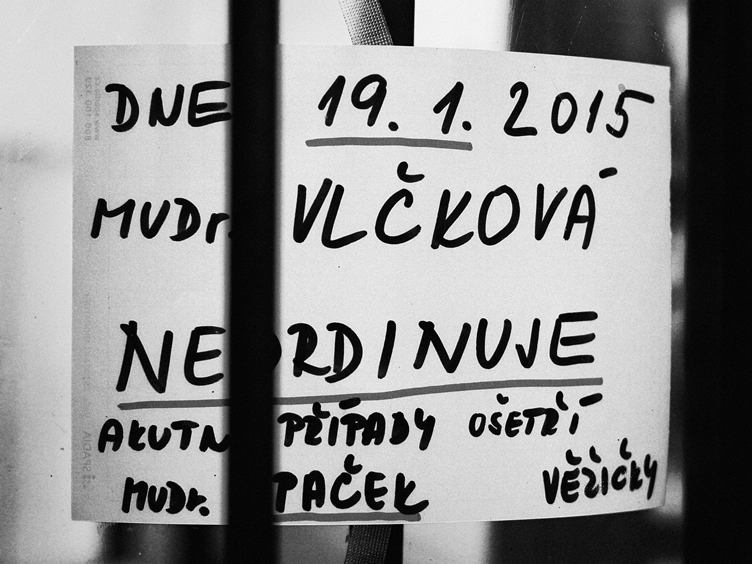 DNE 19. 1. 2015
MUDr. VLČKOVÁ
NEORDINUJE
AKUTNÍ PŘÍPADY OŠETŘÍ
MUDr. PAČEK VĚŽIČKY